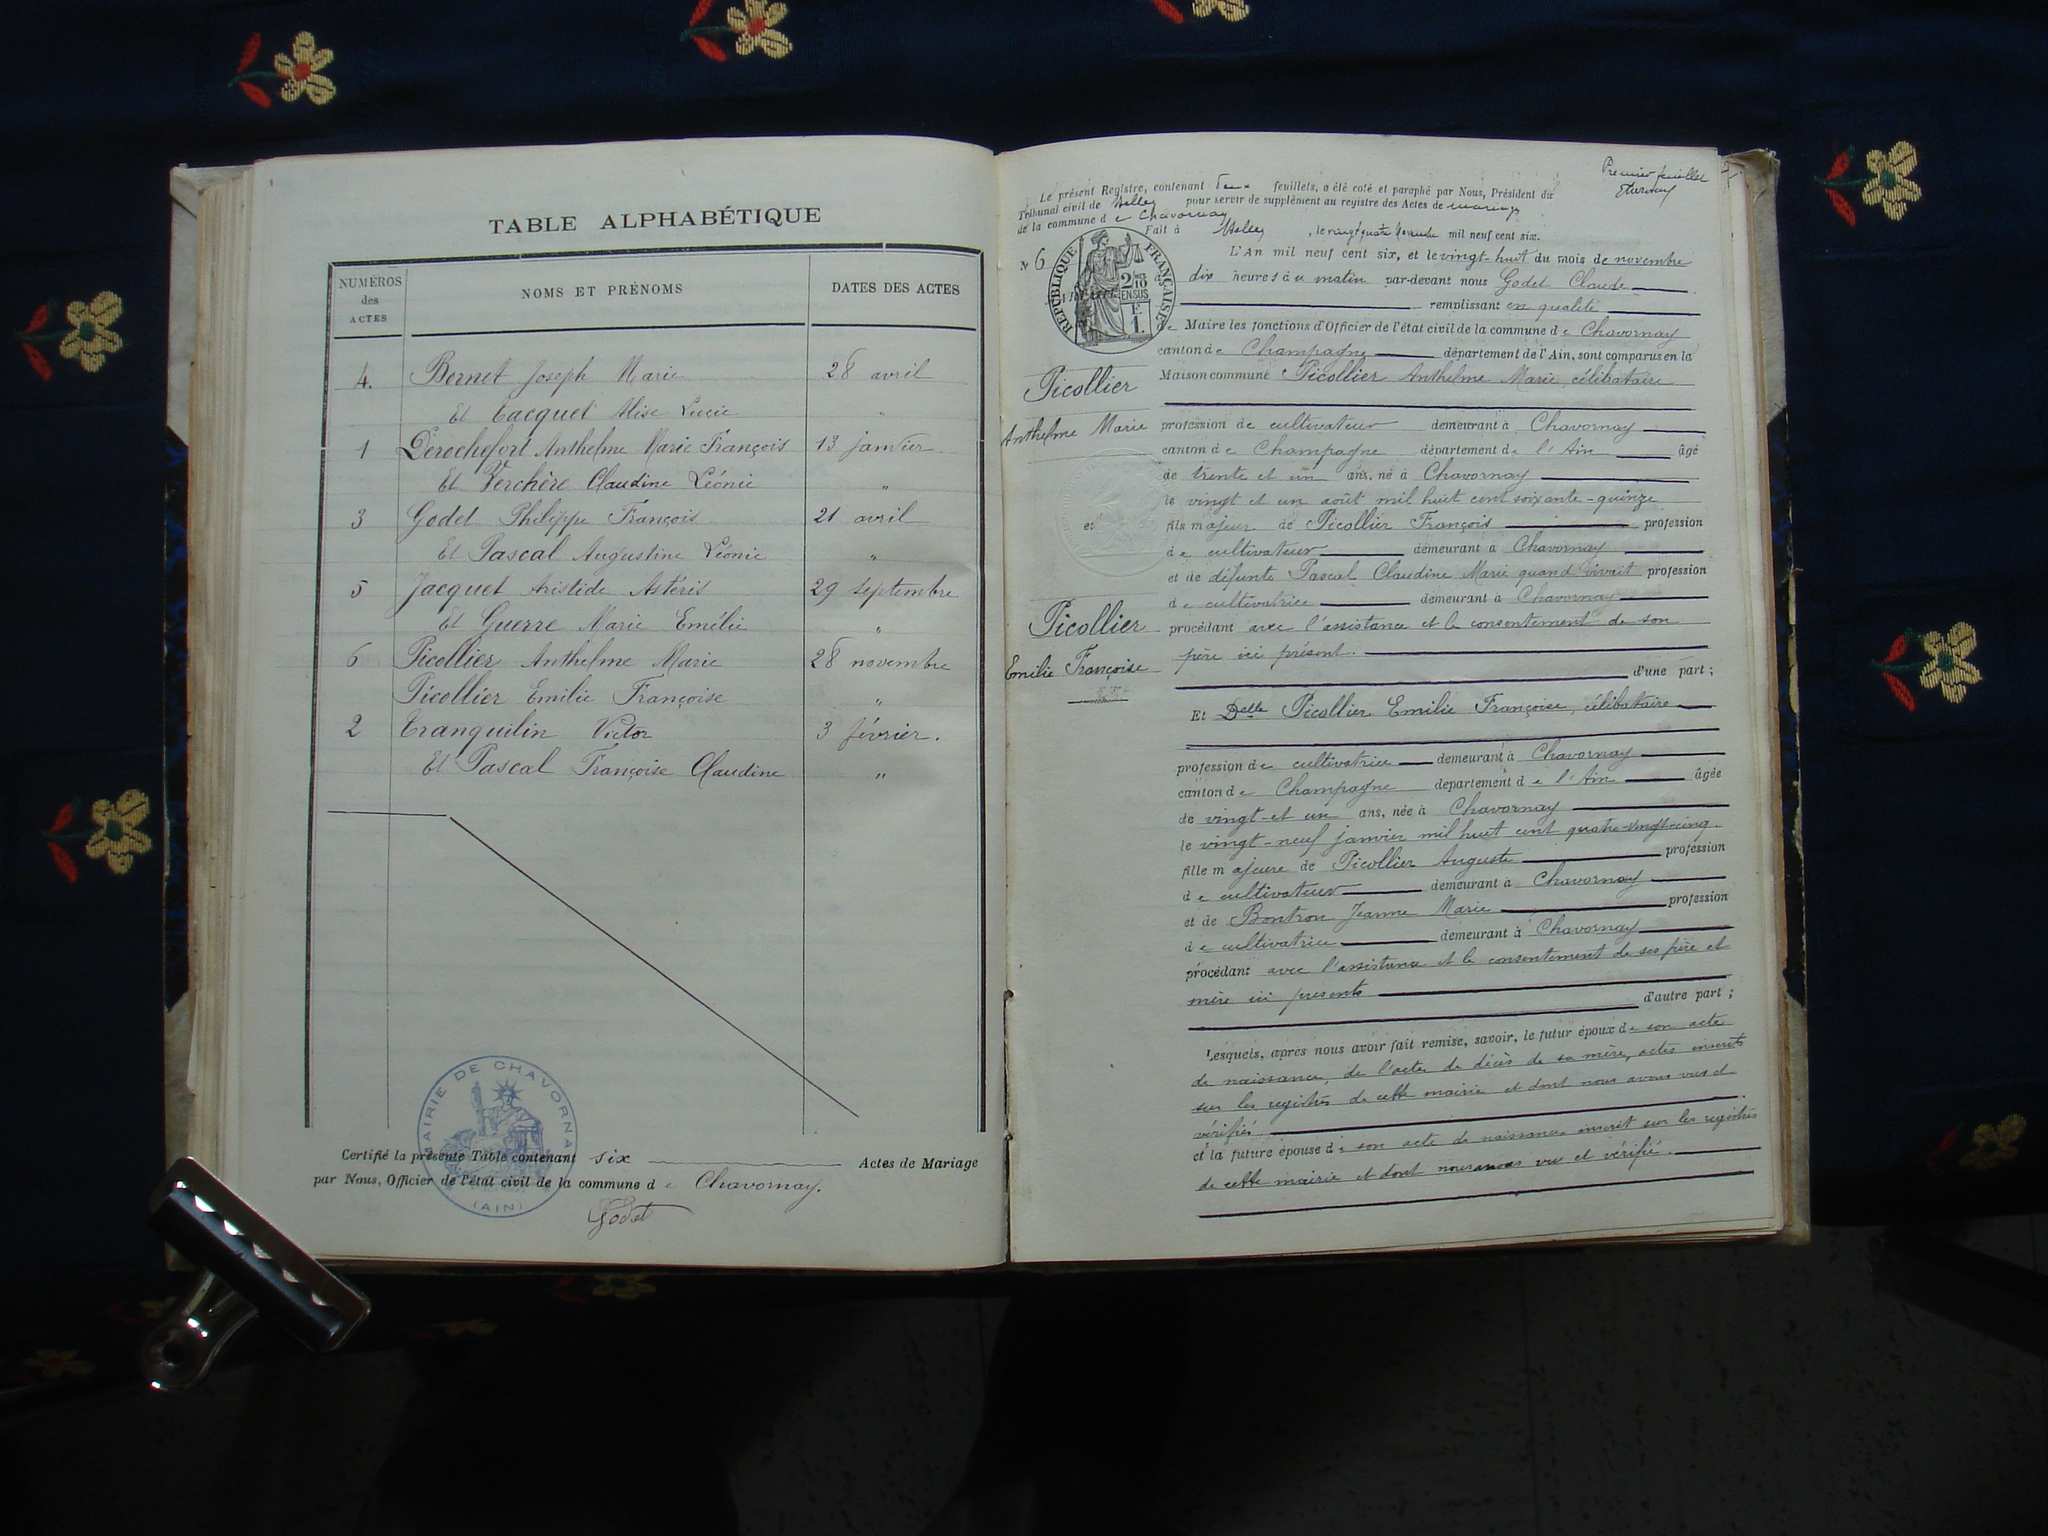 TABLE ALPHABÉTIQUE
NUMÉROS des ACTES
NOMS ET PRÉNOMS
DATES DES ACTES
4. Bornet Joseph Marie 28 avril
Et Tacquet Alise Lucie "
1 Derochefort Anthelme Marie François 13 janvier
Et Verchère Claudine Léonie "
3 Godet Philippe François 21 avril
Et Pascal Augustine Léonie "
5 Jacquet Aristide Astéris 29 septembre
Et Guerre Marie Emélie "
6 Picollier Anthelme Marie 28 novembre
Picollier Emilie Françoise "
2 Tranquilin Victor 3 février.
Et Pascal Françoise Claudine "
MAIRIE DE CHAVORNAY
(AIN)
Certifié la présente Table contenant six Actes de Mariage
par Nous, Officier de l'état civil de la commune de Chavornay.
Godet
Premier feuillet
Le présent Registre, contenant feuillets, a été coté et paraphé par Nous, Président du
Tribunal civil de Belley pour servir de supplément au registre des Actes de mariage
de la commune de Chavornay
Fait à Belley, le vingt quatre Novembre mil neuf cent six.
RÉPUBLIQUE FRANÇAISE
2/10 EN SUS
1.
N 6
L'An mil neuf cent six, et le vingt-huit du mois de novembre
dix heures du matin par-devant nous Godet Claude
remplissant en qualité
de Maire les fonctions d'Officier de l'état civil de la commune de Chavornay
canton de Champagne département de l'Ain, sont comparus en la
Maison commune Picollier Anthelme Marie, célibataire
Picollier
Anthelme Marie
et
Picollier
Emilie Françoise
profession de cultivateur demeurant à Chavornay
canton de Champagne département de l'Ain âgé
de trente et un ans, né à Chavornay
le vingt et un août mil huit cent soixante-quinze
fils majeur de Picollier François profession
de cultivateur demeurant à Chavornay
et de défunte Pascal Claudine Marie quand vivait profession
de cultivatrice demeurant à Chavornay
procédant avec l'assistance et le consentement de son
père ici présent.
d'une part ;
Et Delle Picollier Emilie Françoise, célibataire
profession de cultivatrice demeurant à Chavornay
canton de Champagne département de l'Ain âgée
de vingt-et un ans, née à Chavornay
le vingt-neuf janvier mil huit cent quatre-vingt-cinq.
fille majeure de Picollier Auguste profession
de cultivateur demeurant à Chavornay
et de Bontron Jeanne Marie profession
de cultivatrice demeurant à Chavornay
procédant avec l'assistance et le consentement de ses père et
mère ici présents
d'autre part ;
Lesquels, après nous avoir fait remise, savoir, le futur époux de son acte
de naissance, de l'acte de décès de sa mère, actes inscrits
sur les registres de cette mairie et dont nous avons vus et
vérifiés
et la future épouse de son acte de naissance inscrit sur les registres
de cette mairie et dont nous avons vu et vérifié.